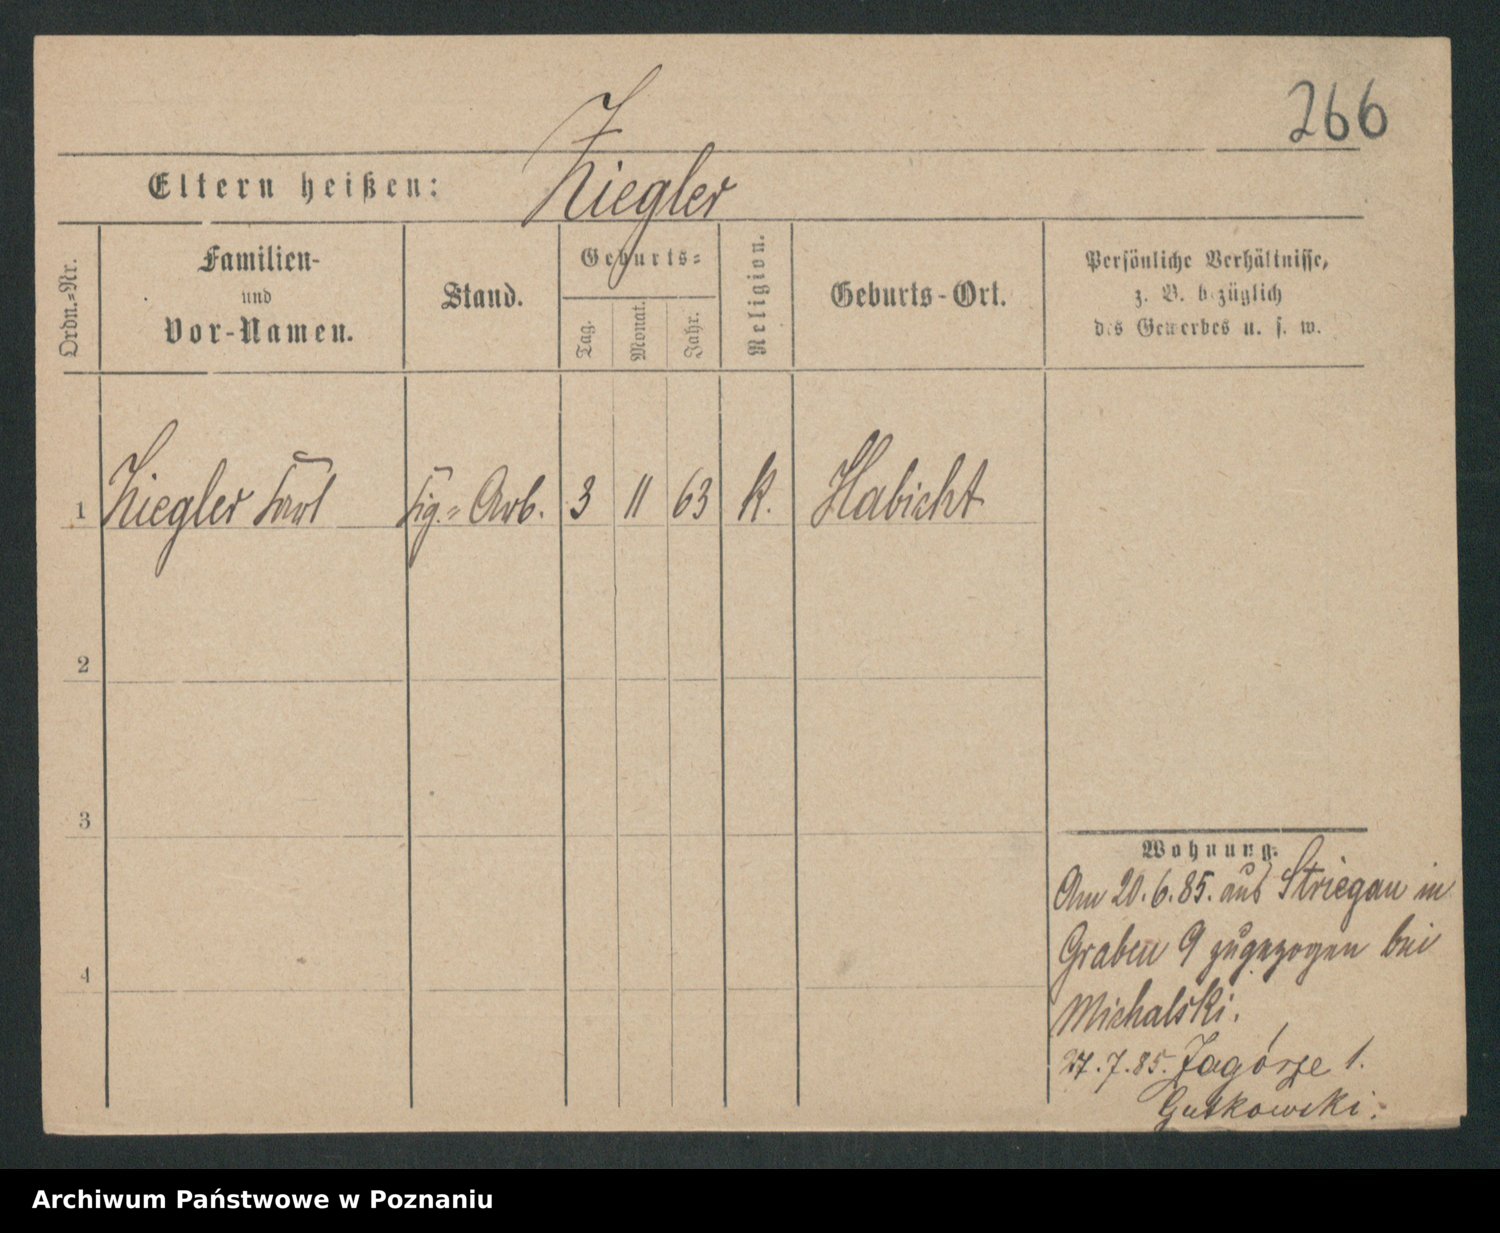 266
Eltern heißen: Ziegler
Ordn.=Nr.
Familien-
und
Vor-Namen.
Stand.
Geburts=
Tag.
Monat.
Jahr.
Religion.
Geburts-Ort.
Persönliche Verhältnisse,
z. B. bezüglich
des Gewerbes u. s. w.
1 Ziegler Carl Cig.= Arb. 3 11 63 K. Habicht
2
3
4
Wohnung.
Am 20.6.85. aus Striegau in
Graben 9 zugezogen bei
Michalski.
27.7.85. Zagórze 1.
Gutkowski.
Archiwum Państwowe w Poznaniu